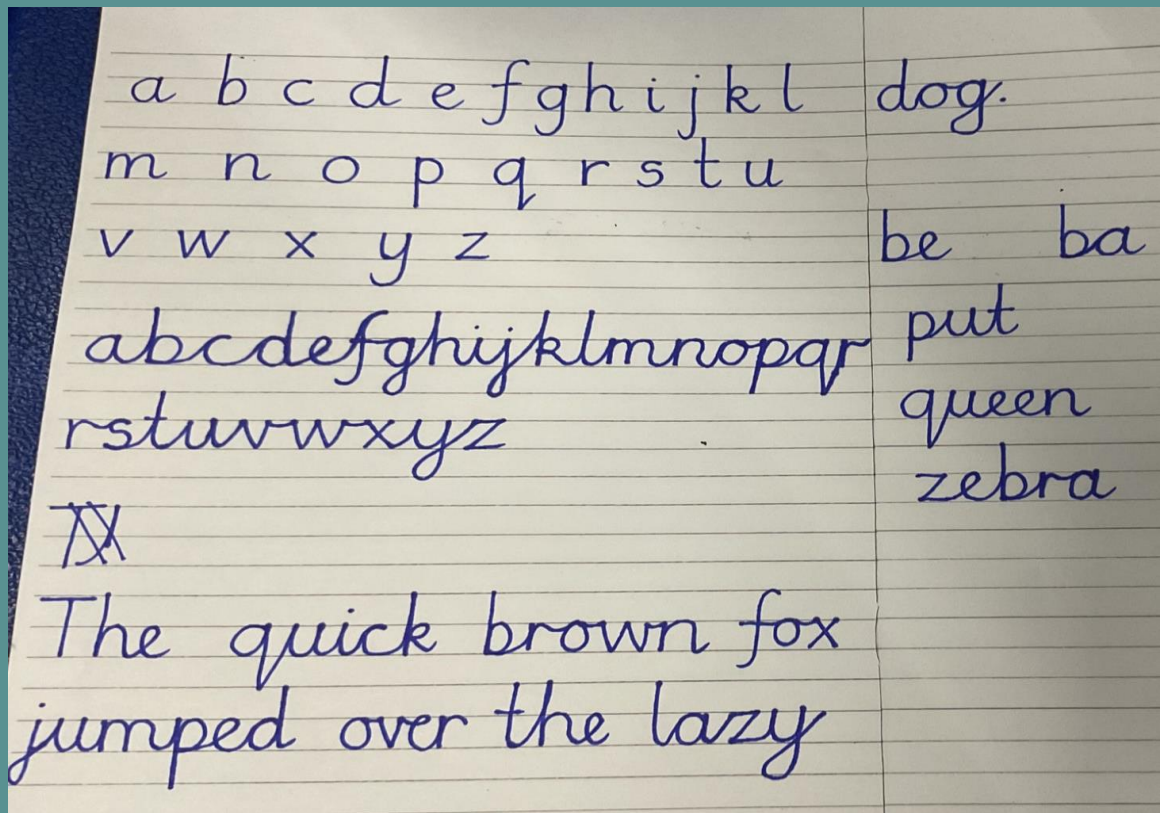 a b c d e f g h i j k l
m n o p q r s t u
v w x y z
abcdefghijklmnopqr
rstuvwxyz
The quick brown fox
jumped over the lazy
dog.
be ba
put
queen
zebra